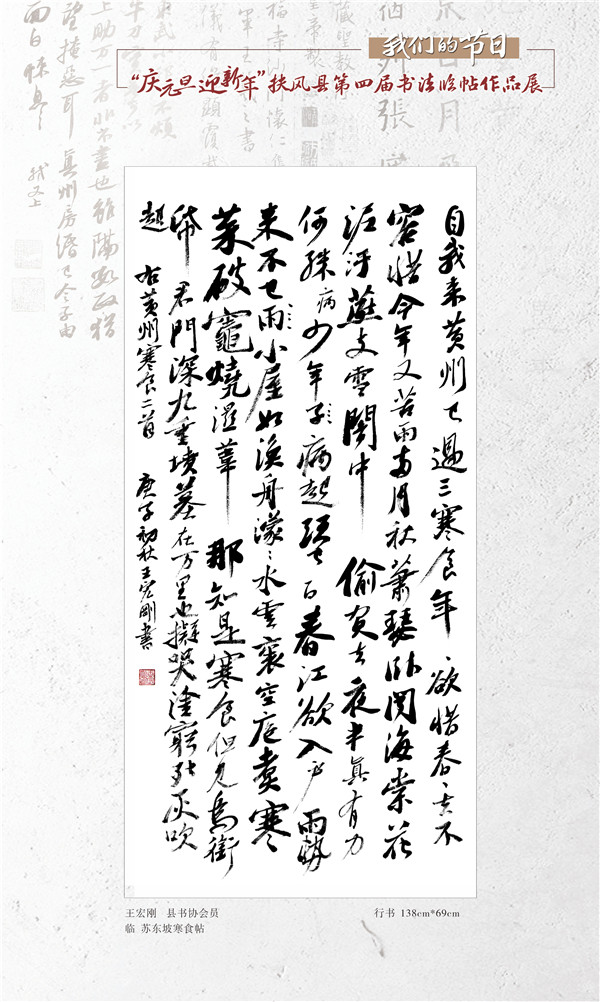 我们的节日
“庆元旦迎新年”扶风县第四届书法临帖作品展
自我来黄州已過三寒食年〻欲惜春〻去不
容惜今年又苦雨两月秋蕭瑟卧闻海棠花
泥汙燕支雪闇中偷负去夜半真有力
何殊病少年子〻病起頭已白春江欲入户雨勢
来不已雨〻小屋如渔舟濛〻水雲裏空庖煮寒
菜破竈燒濕葦那知是寒食但见烏銜
帋君門深九重墳墓在万里也擬哭塗窮死灰吹
起右黄州寒食二首庚子初秋王宏刚书
王宏刚 县书协会员
临 苏东坡寒食帖
行书 138cm*69cm